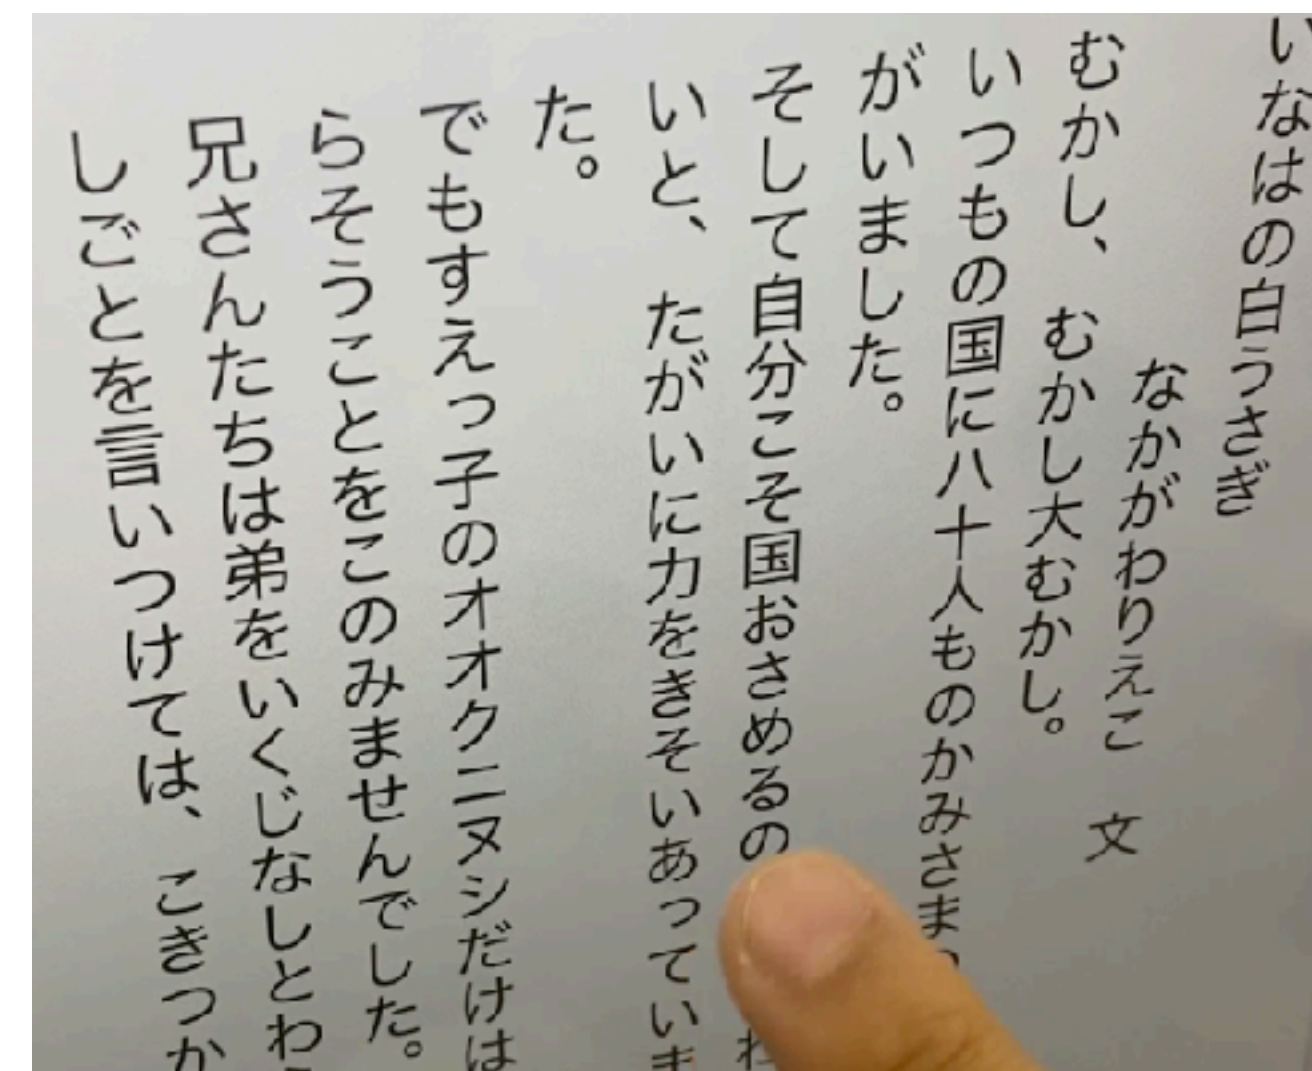 いなはの白うさぎ
なかがわりえこ　文
むかし、むかし大むかし。
いつもの国に八十人ものかみさま
がいました。
そして自分こそ国おさめるの
いと、たがいに力をきそいあっていま
た。
でもすえっ子のオオクニヌシだけは
らそうことをこのみませんでした。
兄さんたちは弟をいくじなしとわ
しごとを言いつけては、こきつか